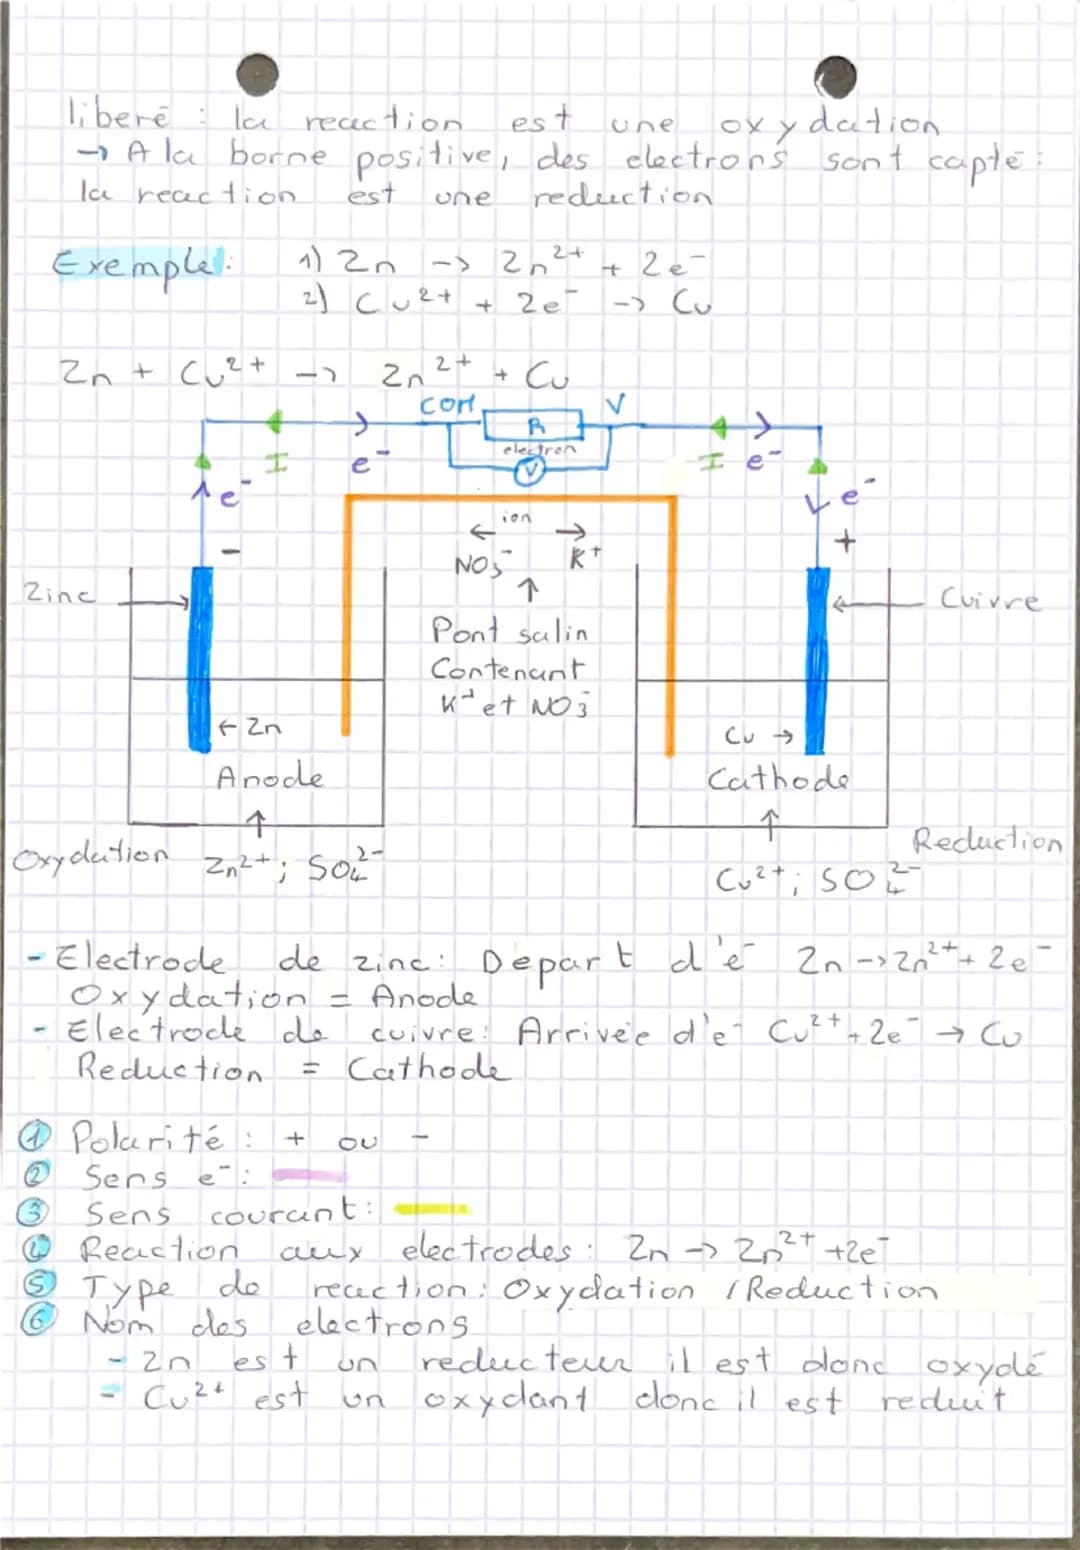 liberé : la reaction est une oxydation
→ A la borne positive, des electrons sont capté :
la reaction est une reduction
Exemple : 1) Zn -> Zn²⁺ + 2e⁻
2) Cu²⁺ + 2e⁻ -> Cu
Zn + Cu²⁺ -> Zn²⁺ + Cu
COM R V
electron
V
I e⁻ I e⁻
e⁻ e⁻
- +
ion
← →
NO₃⁻ K⁺
↑
Zinc Cuivre
Pont salin
Contenant
K⁺ et NO₃⁻
← Zn Cu →
Anode Cathode
↑ ↑
Oxydation Reduction
Zn²⁺ ; SO₄²⁻ Cu²⁺ ; SO₄²⁻
- Electrode de zinc : Depart d'e⁻ Zn -> Zn²⁺ + 2e⁻
Oxydation = Anode
- Electrode de cuivre : Arrivée d'e⁻ Cu²⁺ + 2e⁻ → Cu
Reduction = Cathode
① Polarité : + ou -
② Sens e⁻ :
③ Sens courant :
④ Reaction aux electrodes : Zn -> Zn²⁺ + 2e⁻
⑤ Type de reaction : Oxydation / Reduction
⑥ Nom des electrons
- Zn est un reducteur il est donc oxydé
- Cu²⁺ est un oxydant donc il est reduit